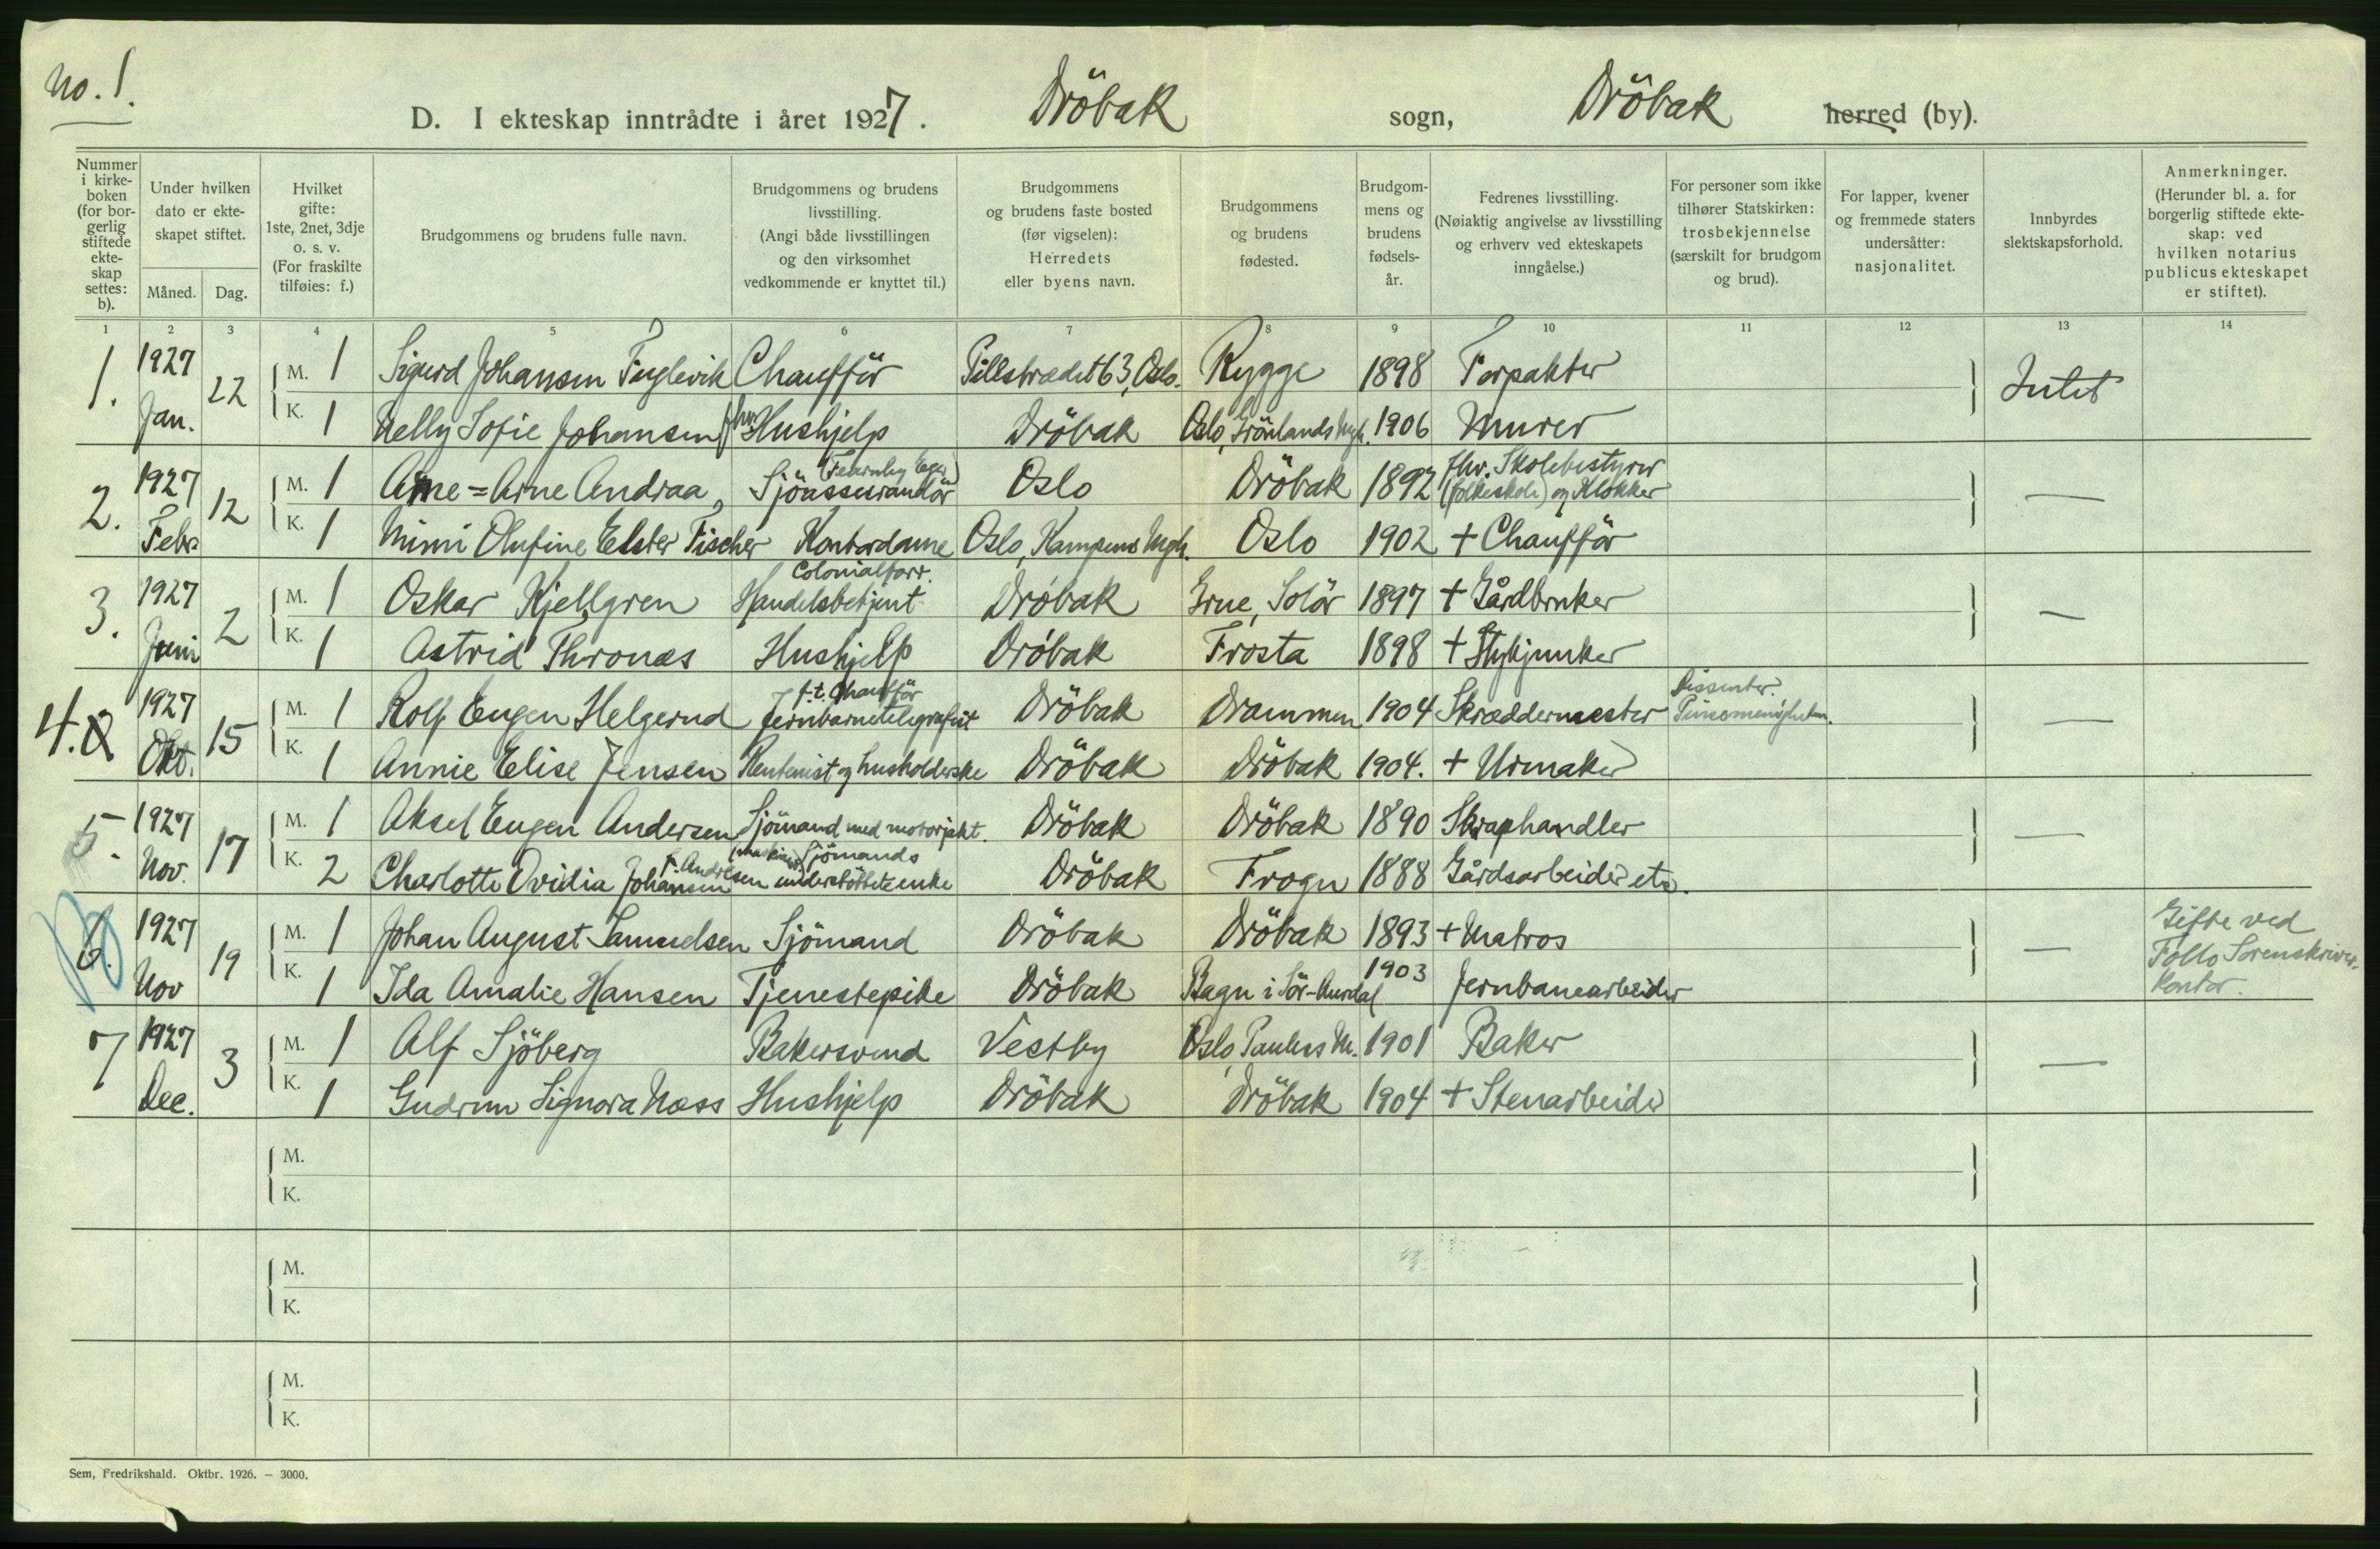 No. 1.
D. I ekteskap inntrådte i året 1927. Dröbak sogn, Dröbak herred (by).
Nummer i kirkeboken (for borgerlig stiftede ekteskap settes: b).
Under hvilken dato er ekteskapet stiftet.
Måned. Dag.
Hvilket gifte: 1ste, 2net, 3dje o. s. v. (For fraskilte tilføies: f.)
Brudgommens og brudens fulle navn.
Brudgommens og brudens livsstilling. (Angi både livsstillingen og den virksomhet vedkommende er knyttet til.)
Brudgommens og brudens faste bosted (før vigselen): Herredets eller byens navn.
Brudgommens og brudens fødested.
Brudgommens og brudens fødselsår.
Fedrenes livsstilling. (Nøiaktig angivelse av livsstilling og erhverv ved ekteskapets inngåelse.)
For personer som ikke tilhører Statskirken: trosbekjennelse (særskilt for brudgom og brud).
For lapper, kvener og fremmede staters undersåtter: nasjonalitet.
Innbyrdes slektskapsforhold.
Anmerkninger. (Herunder bl. a. for borgerlig stiftede ekteskap: ved hvilken notarius publicus ekteskapet er stiftet).
1 2 3 4 5 6 7 8 9 10 11 12 13 14
1. 1927 Jan. 22 M. 1 Sigurd Johansen Fuglevik Chaufför Pillestrædet 63, Oslo. Rygge 1898 Forpakter Intet
K. 1 Nelly Sofie Johansen fhv. Hushjelp Dröbak Oslo, Grönlands Mgh. 1906 Murer
2. 1927 Febr 12 M. 1 Arne = Arne Andraa, Sjöassurandör (Fearnley Eger) Oslo Dröbak 1892 fhv. Skolebestyrer (folkeskole) og Klokker —
K. 1 Mimi Olufine Elster Fischer Kontordame Oslo, Kampens Mgh. Oslo 1902 + Chaufför
3. 1927 Juni 2 M. 1 Oskar Kjellgren Colonialforr. Handelsbetjent Dröbak Grue, Solör 1897 + Gårdbruker —
K. 1 Astrid Thronæs Hushjelp Dröbak Frosta 1898 + Stykjunker
4. 1927 Okt. 15 M. 1 Rolf Eugen Helgerud f.t. Chaufför Jernbanetelegrafist Dröbak Drammen 1904 Skræddermester Dissenter. Pinsemenigheten. —
K. 1 Annie Elise Jensen Kontorist og husholderske Dröbak Dröbak 1904. + Urmaker
5. 1927 Nov. 17 M. 1 Aksel Eugen Andersen Sjömand med motorjakt. (maskinist) Dröbak Dröbak 1890 Skraphandler —
K. 2 Charlotte Ovidia Johansen f. Andresen Sjömands understöttete enke Dröbak Frogn 1888 Gårdsarbeider etc.
B 6. 1927 Nov 19 M. 1 Johan August Samuelsen Sjömand Dröbak Dröbak 1893 + Matros — Gifte ved Follo Sorenskriver-kontor.
K. 1 Ida Amalie Hansen Tjenestepike Dröbak Bagn i Sör-Aurdal 1903 Jernbanearbeider
7 1927 Dec. 3 M. 1 Alf Sjöberg Bakersvend Vestby Oslo, Paulus M. 1901 Baker —
K. 1 Gudrun Signora Næss Hushjelp Dröbak Dröbak 1904 + Stenarbeider
M.
K.
M.
K.
M.
K.
Sem, Fredrikshald. Oktbr. 1926. — 3000.